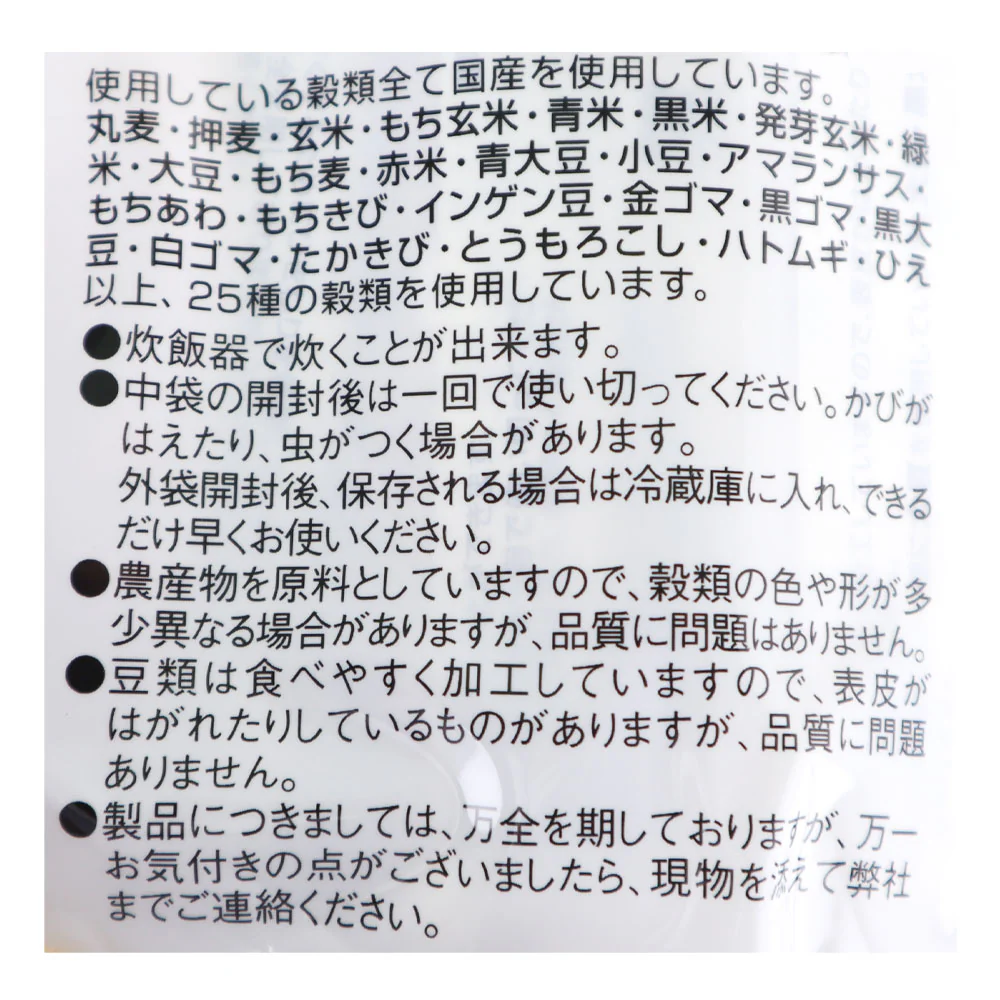 使用している穀類全て国産を使用しています。
丸麦・押麦・玄米・もち玄米・青米・黒米・発芽玄米・緑
米・大豆・もち麦・赤米・青大豆・小豆・アマランサス・
もちあわ・もちきび・インゲン豆・金ゴマ・黒ゴマ・黒大
豆・白ゴマ・たかきび・とうもろこし・ハトムギ・ひえ
以上、25種の穀類を使用しています。
●炊飯器で炊くことが出来ます。
●中袋の開封後は一回で使い切ってください。かびが
はえたり、虫がつく場合があります。
外袋開封後、保存される場合は冷蔵庫に入れ、できる
だけ早くお使いください。
●農産物を原料としていますので、穀類の色や形が多
少異なる場合がありますが、品質に問題はありません。
●豆類は食べやすく加工していますので、表皮が
はがれたりしているものがありますが、品質に問題
ありません。
●製品につきましては、万全を期しておりますが、万一
お気付きの点がございましたら、現物を添えて弊社
までご連絡ください。